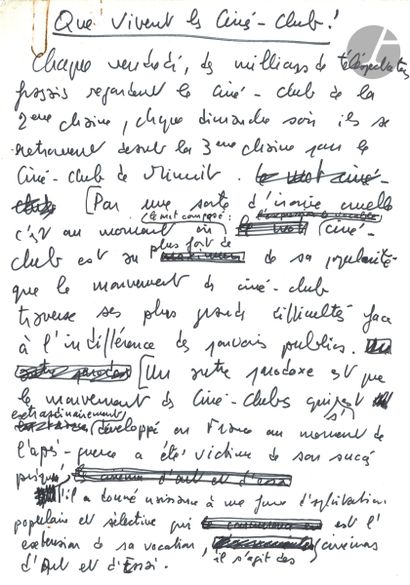 Que vivent les Ciné-Club!
Chaque vendredi, des millions de téléspectateurs
français regardent le Ciné-Club de la
2ème chaîne, chque dimanche soir ils se
retrouvent devant la 3ème chaîne pour le
Ciné-Club de Minuit. le mot ciné-
club [Par une sorte d'ironie cruelle
le mot composé:
c'est au moment où (ciné-
plus fort de
club est au de sa popularité
que le mouvement des ciné-club
traverse ses plus grands difficultés face
à l'indifférence des pouvoirs publics.
[Un autre paradoxe est que
le mouvement des Ciné-Clubs qui s'est
extraordinairement
développé en France au moment de
l'après-guerre a été victime de son succès
puisqu' cinéma d'art et d'essai
'il a donné naissance à une forme d'exploitation
populaire et sélective qui est l'
extension de sa vocation, il s'agit des cinémas
d'Art et d'Essai.